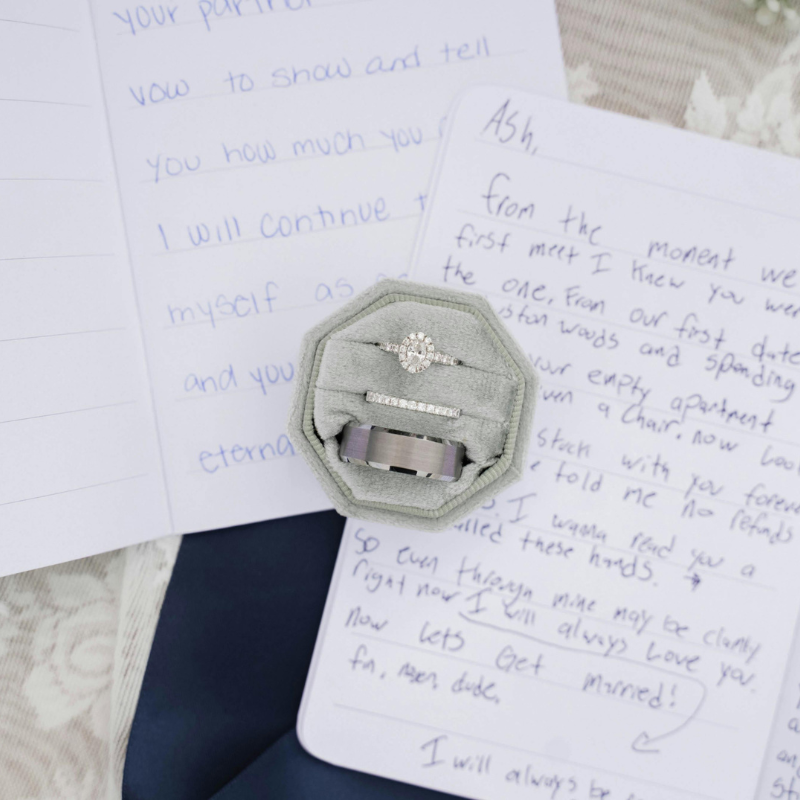 your partner
vow to show and tell
you how much you
I will continue
myself as
and you
eterna
Ash,
from the moment we
first meet I knew you wer
the one. From our first date
ston woods and spending
your empty apartment
ven a chair. now
stuck with you forever
e told me no refunds
I wanna read you a
alled these hands.
So even through mine may be clamy
right now I will always Love you.
now lets Get married!
I will always be